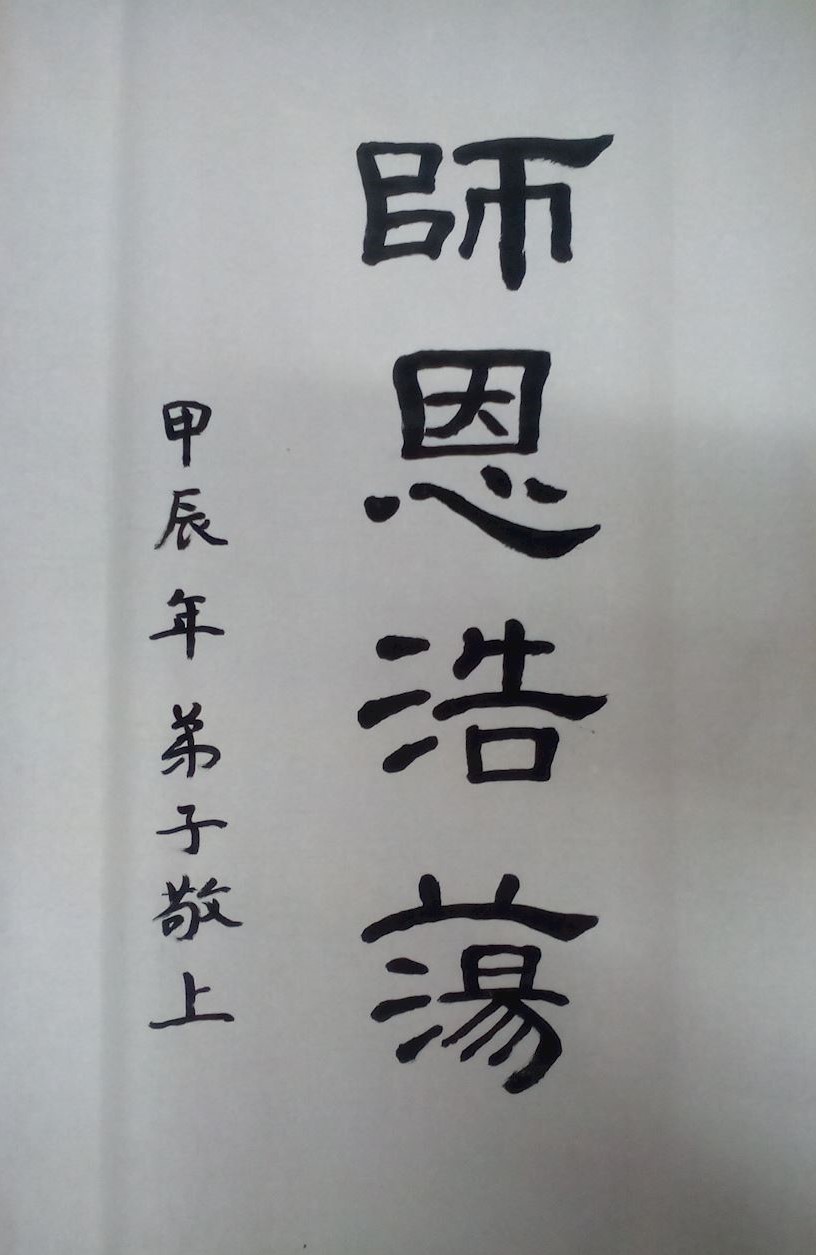 師恩浩蕩
甲辰年弟子敬上